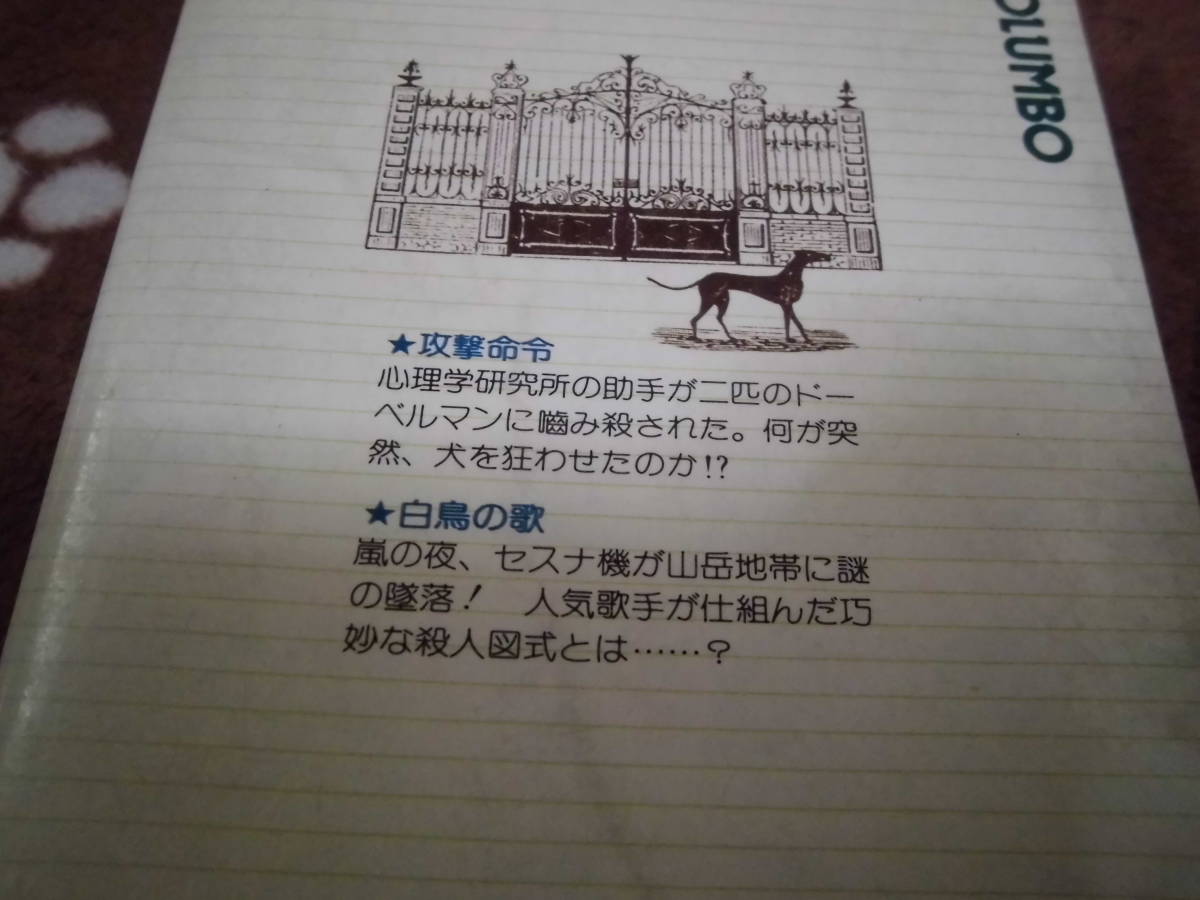 OLUMBO
★攻撃命令
心理学研究所の助手が二匹のドー
ベルマンに嚙み殺された。何が突
然、犬を狂わせたのか!?
★白鳥の歌
嵐の夜、セスナ機が山岳地帯に謎
の墜落! 人気歌手が仕組んだ巧
妙な殺人図式とは……?